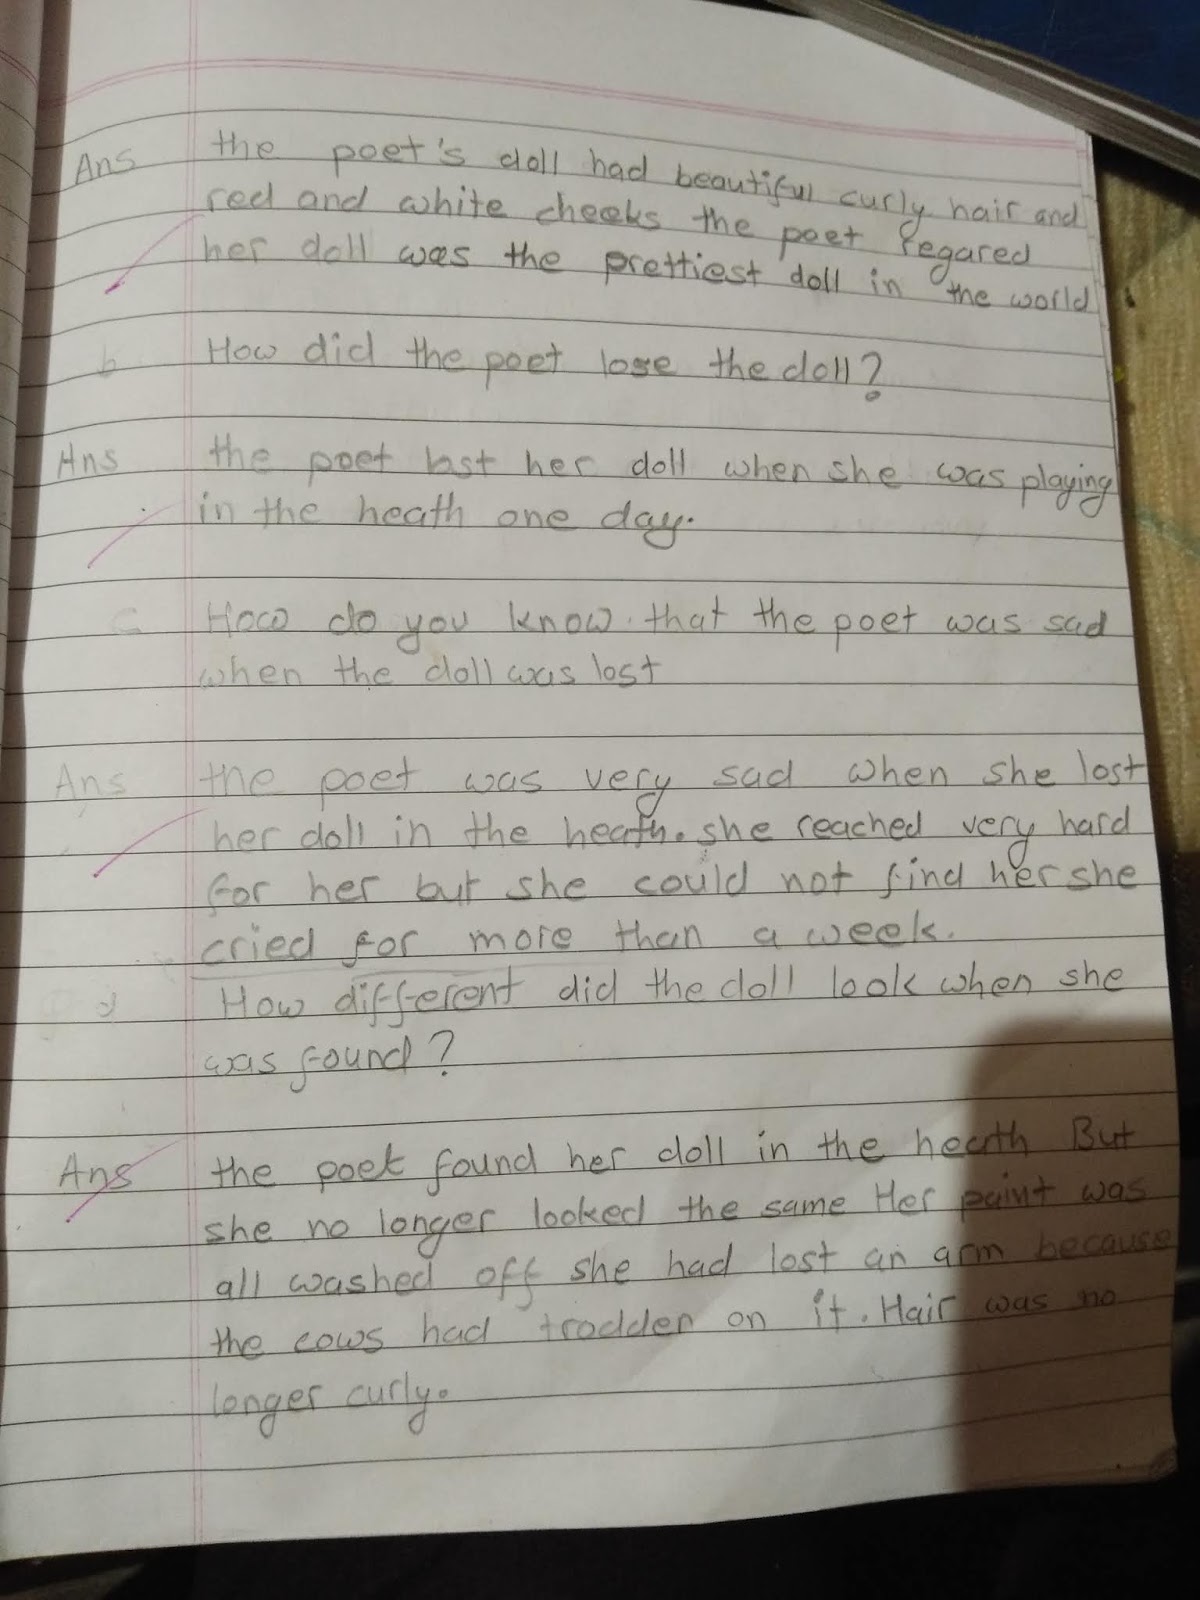 Ans the poet's doll had beautiful curly hair and
red and white cheeks the poet regared
her doll was the prettiest doll in the world
b How did the poet lose the doll?
Ans the poet last her doll when she was playing
in the heath one day.
c How do you know that the poet was sad
when the doll was lost
Ans the poet was very sad when she lost
her doll in the heath. she reached very hard
for her but she could not find her she
cried for more than a week.
d How different did the doll look when she
was found?
Ans the poet found her doll in the heath But
she no longer looked the same Her paint was
all washed off she had lost an arm because
the cows had trodden on it. Hair was no
longer curly.